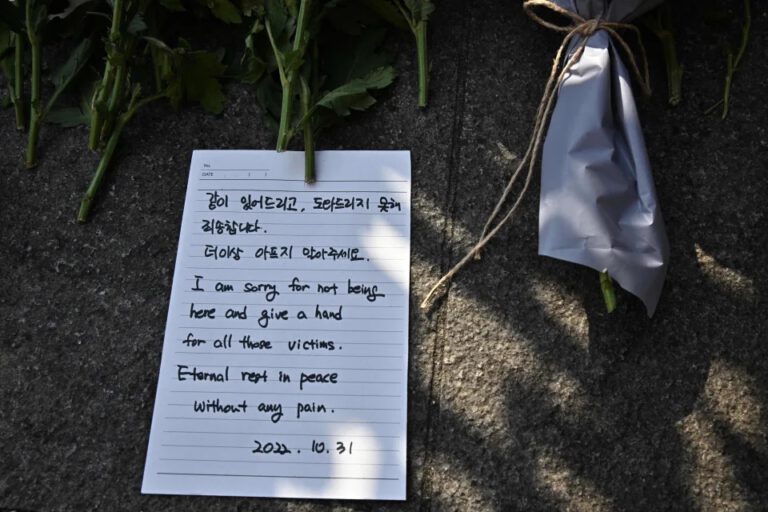 No.
DATE . ( . )
같이 있어드리고, 도와드리지 못해
죄송합니다.
더이상 아프지 말아주세요.
I am sorry for not being
here and give a hand
for all those victims.
Eternal rest in peace
without any pain.
2022. 10. 31